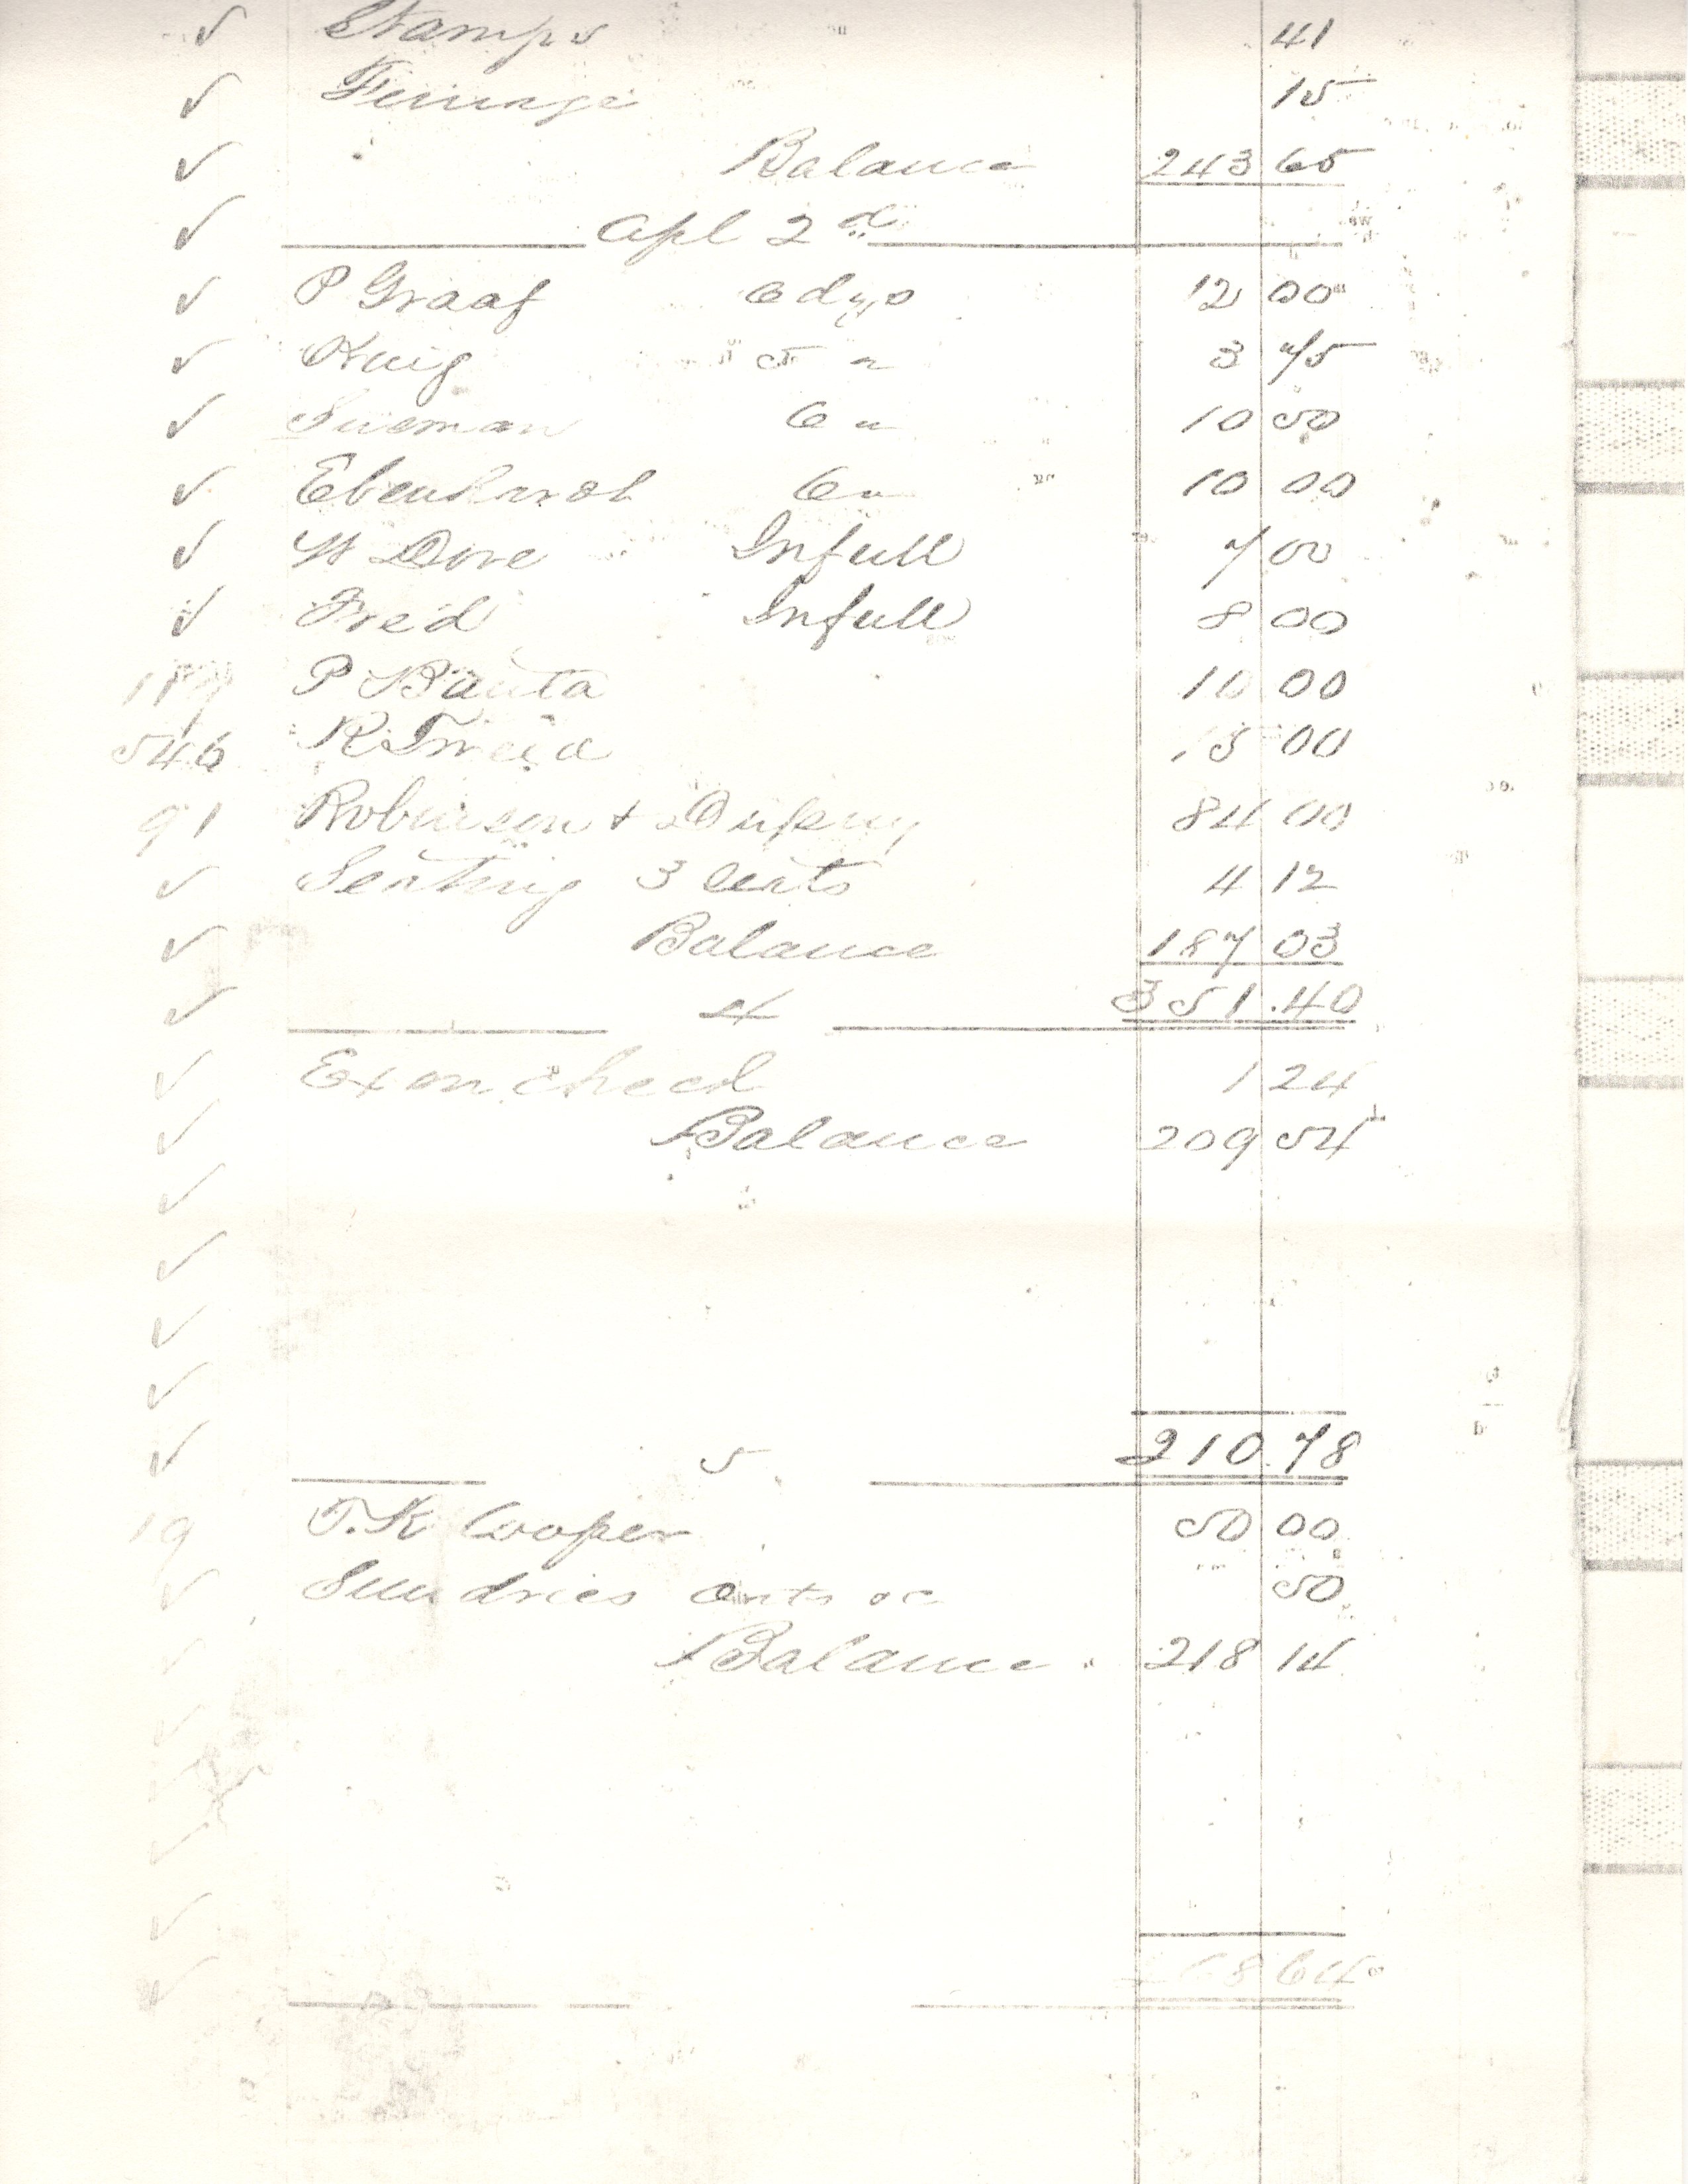 ✓ Stamps 41
✓ 15
✓ Balance 243 65
✓ Apl 2d
✓ P Graaf 6 dys 12 00
✓ Haig 5 " 3 75
✓ 6 " 10 50
✓ Eberhardt 6 " 10 00
✓ W Dove Infull 7 00
✓ Fred Infull 8 00
P Banta 10 00
546 R Tweed 15 00
91 Robinson + 84 00
✓ 3 4 12
✓ Balance 187 03
✓ 4 351.40
✓ Ex on check 1 24
✓ Balance 209 54
✓
✓
✓
✓
✓ 5 210.78
19 T. K Cooper 50 00
✓ Sundries 50
✓ Balance 218 14
✓
✓
✓
✓
✓ 268 64